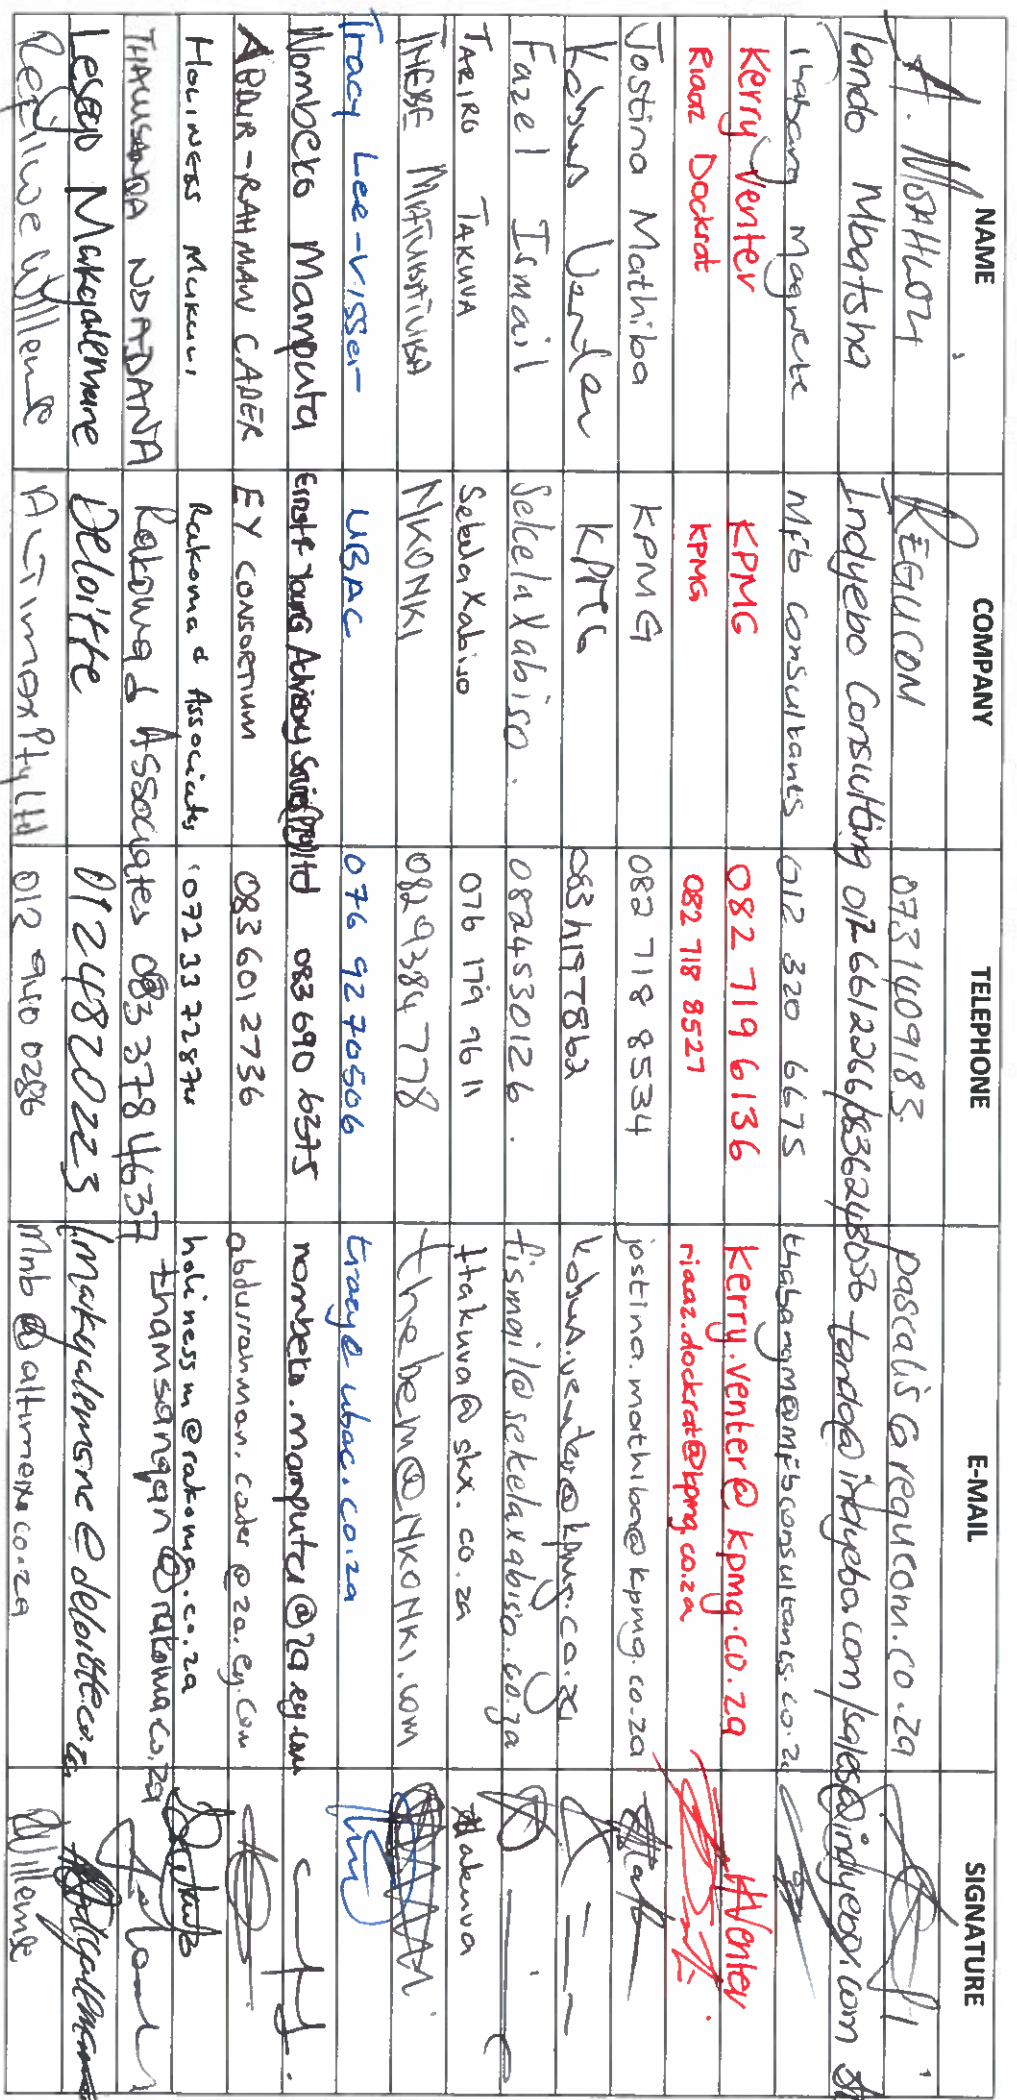 NAME COMPANY TELEPHONE E-MAIL SIGNATURE
A. REGUCON 0731409183 pascalis@regucom.co.za
Tando Mbatsha Indyebo Consulting 012 6612266/0836248036 tando@indyebo.com/sales@indyebo.com
Thabang Magnete Mfb Consultants 012 320 6675 thabangm@mfbconsultants.co.za
Kerry Venter KPMG 082 719 6136 Kerry.venter@kpmg.co.za HVenter
Riaaz Dockrat KPMG 082 718 8527 riaaz.dockrat@kpmg.co.za
Jostina Mathiba KPMG 082 718 8534 jostina.mathiba@kpmg.co.za
Kobus Venter KPMG kobus.venter@kpmg.co.za
Fazel Ismail SekelaXabiso. 0824530126. fismail@sekelaxabiso.co.za
TARIRO TAKUVA SekelaXabiso 076 179 9611 ttakuva@skx.co.za ttakuva
THEBE NKONKI 0829384778 thebem@NKONKI.com
Tracy Lee-Visser UBAC 076 9270506 tracy@ubac.co.za
Nombeko Mamputa Ernst & Young Advisory Services (Pty) ltd 083 690 6375 nombeko.mamputa@za.ey.com
ABDUR-RAHMAN CADER EY CONSORTIUM 083 601 2736 abdurrahman.cader@za.ey.com
HOLINESS Rakoma & Associates holinessm@rakoma.co.za
THAMSANQA NDADANA Rakoma & Associates 083 378 4637 thamsanqan@rakoma.co.za
Lesego Makgalemane Deloitte 012482023 lmakgalemane@deloitte.co.za
Refilwe Willemse Altimax Pty Ltd 012 940 0286 Mnb@altimax.co.za Willemse